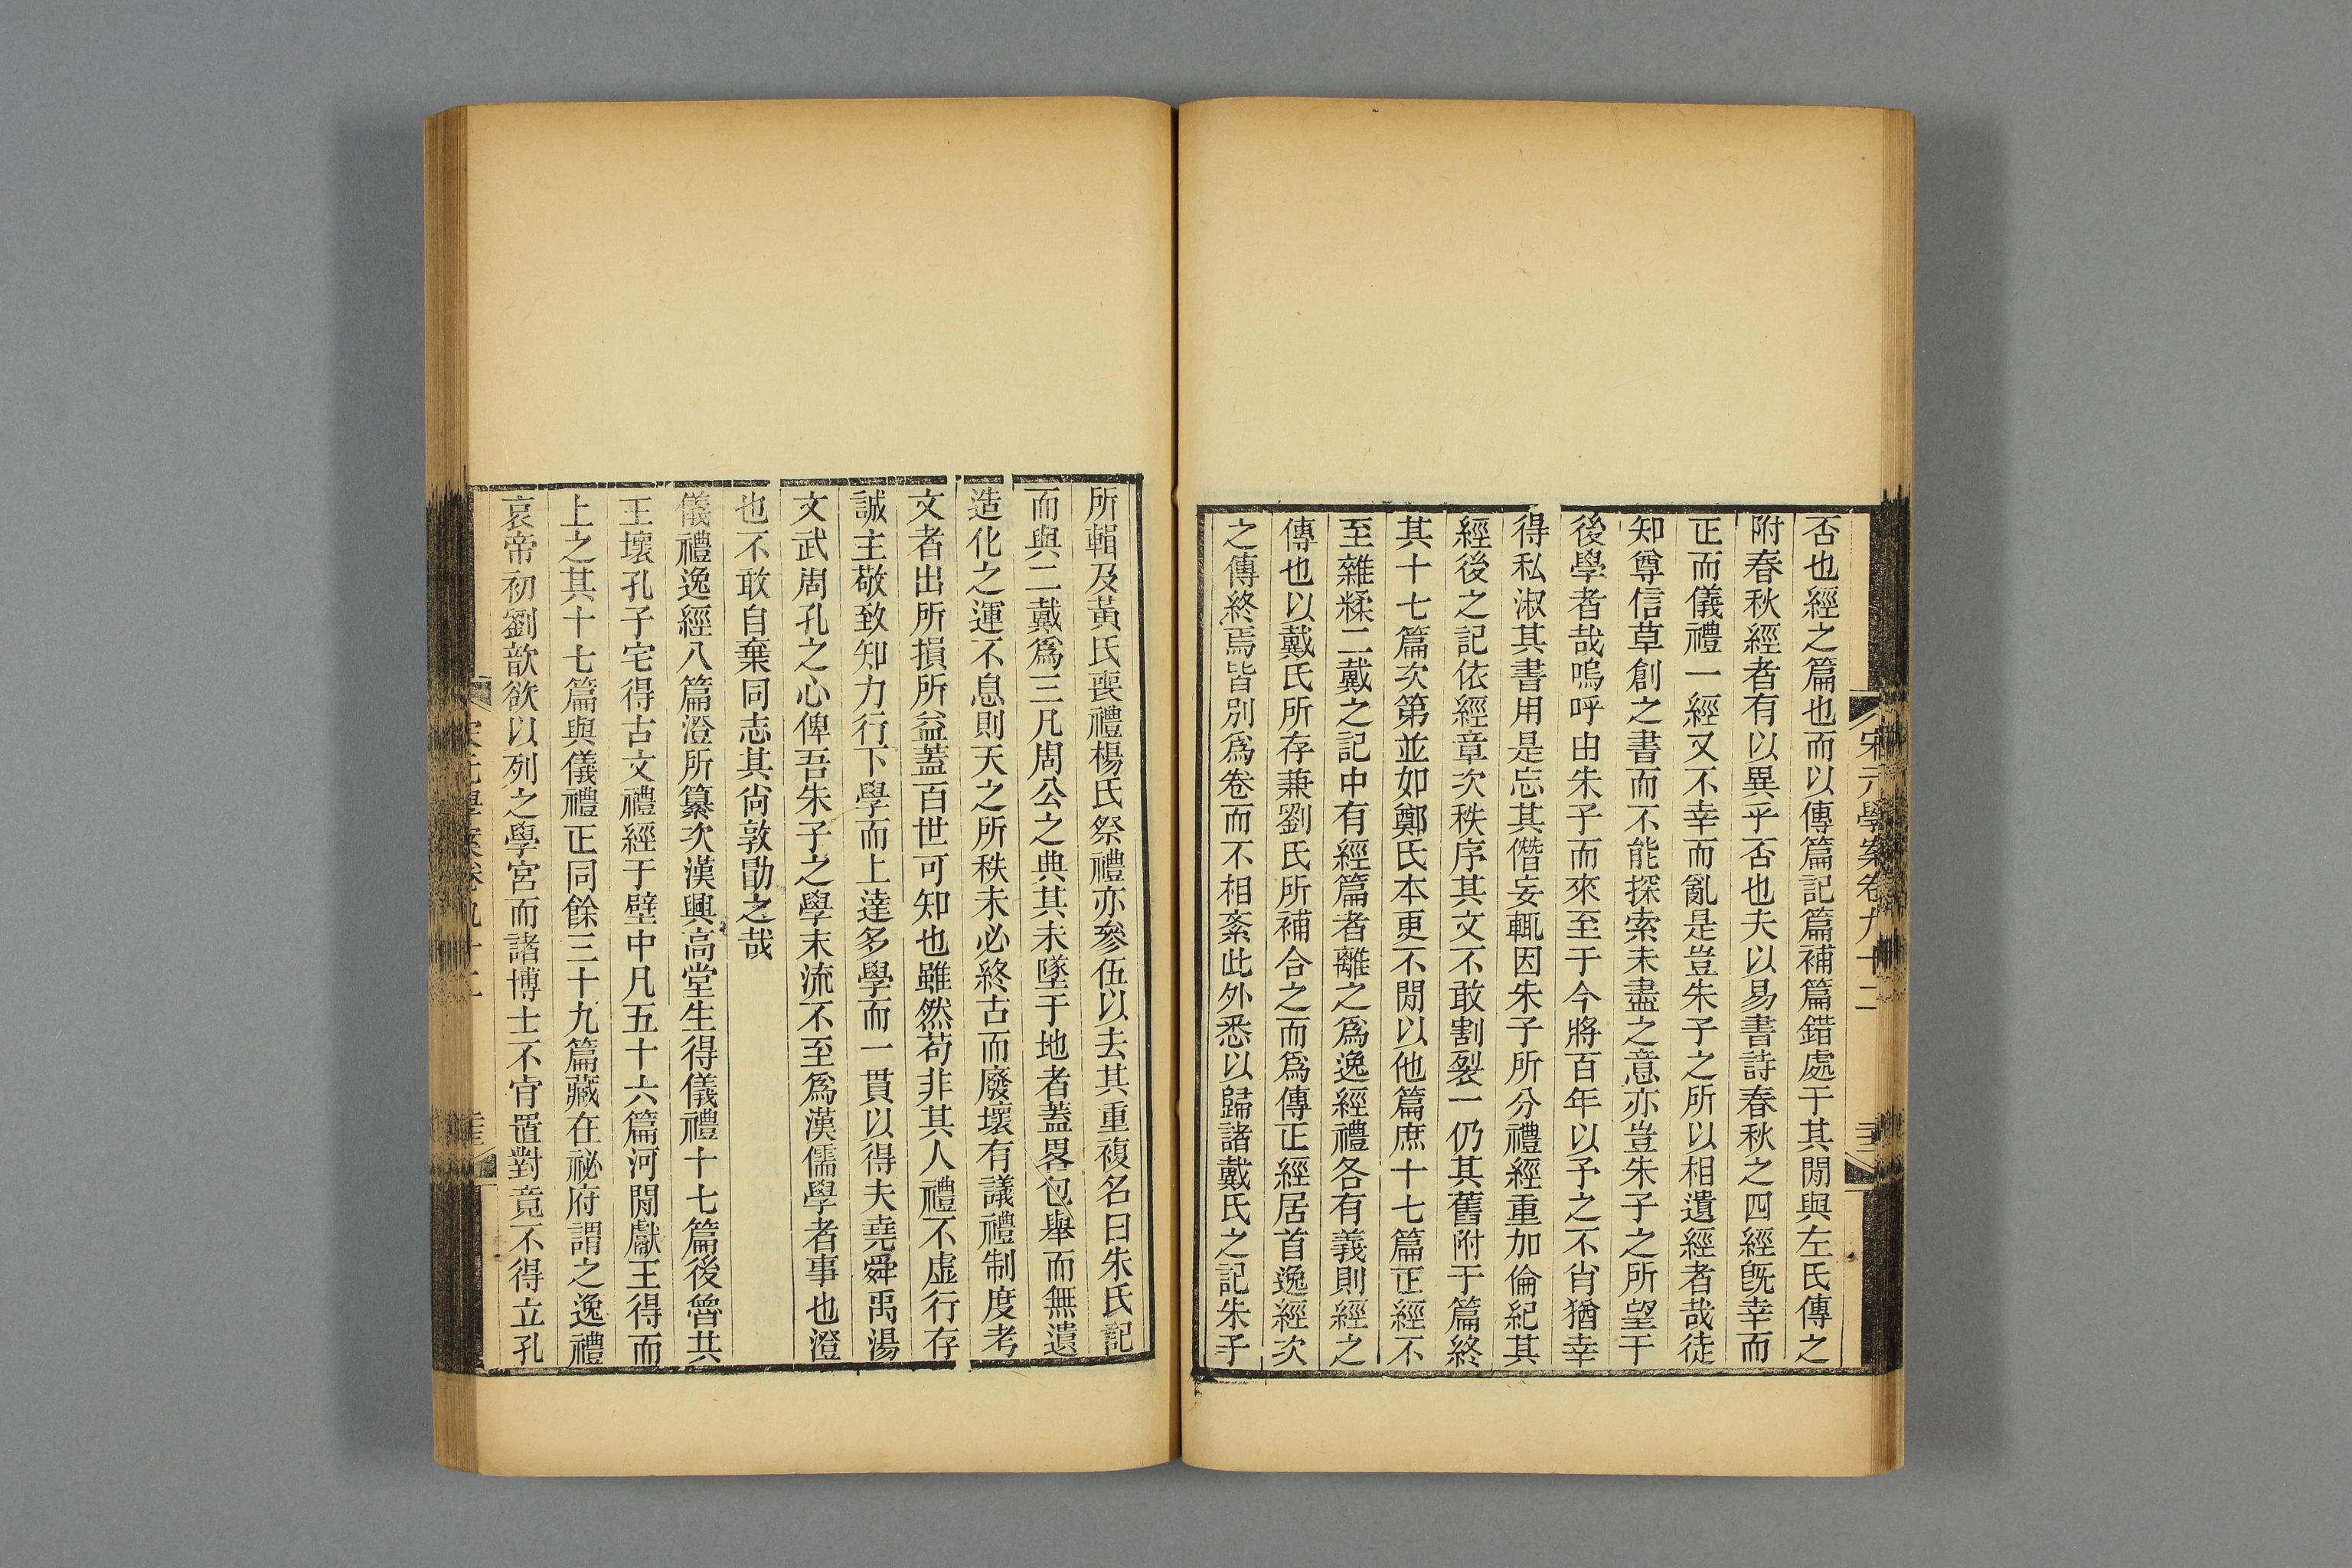 宋元學案卷九十二
否也經之篇也而以傳篇記篇補篇錯處于其閒與左氏傳之
附春秋經者有以異乎否也夫以易書詩春秋之四經旣幸而
正而儀禮一經又不幸而亂是豈朱子之所以相遺經者哉徒
知尊信草創之書而不能探索未盡之意亦豈朱子之所望于
後學者哉嗚呼由朱子而來至于今將百年以予之不肖猶幸
得私淑其書用是忘其僭妄輒因朱子所分禮經重加倫紀其
經後之記依經章次秩序其文不敢割裂一仍其舊附于篇終
其十七篇次第並如鄭氏本更不閒以他篇庶十七篇正經不
至雜糅二戴之記中有經篇者離之爲逸經禮各有義則經之
傳也以戴氏所存兼劉氏所補合之而爲傳正經居首逸經次
之傳終焉皆別爲卷而不相紊此外悉以歸諸戴氏之記朱子
所輯及黃氏喪禮楊氏祭禮亦參伍以去其重複名曰朱氏記
而與二戴爲三凡周公之典其未墜于地者蓋畧包舉而無遺
造化之運不息則天之所秩未必終古而廢壞有議禮制度考
文者出所損所益蓋百世可知也雖然苟非其人禮不虛行存
誠主敬致知力行下學而上達多學而一貫以得夫堯舜禹湯
文武周孔之心俾吾朱子之學末流不至爲漢儒學者事也澄
也不敢自棄同志其尙敦勖之哉
儀禮逸經八篇澄所纂次漢興高堂生得儀禮十七篇後魯共
王壞孔子宅得古文禮經于壁中凡五十六篇河閒獻王得而
上之其十七篇與儀禮正同餘三十九篇藏在祕府謂之逸禮
哀帝初劉歆欲以列之學宮而諸博士不肯置對竟不得立孔
宋元學案卷九十二